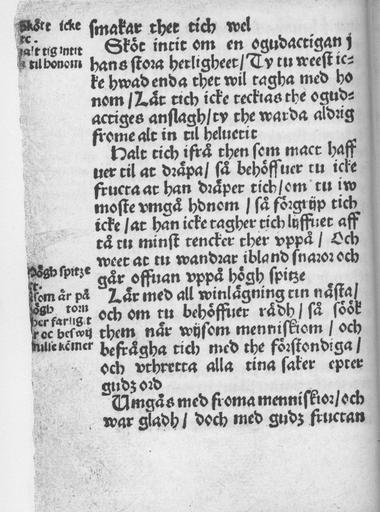 smakar thet tich wel
Sköt intit om en ogudactigan j
hans stora herligheet / Ty tu weest ic⸗
ke hwad enda thet wil tagha med ho
nom / Låt tich icke teckias the ogud⸗
actiges anslagh / ty the warda aldrig
frome alt in til heluetit
Halt tich ifrå then som mact haff
uer til at dräpa / så behöffuer tu icke
fructa at han dräper tich / om tu iw
moste vmgå honom / så förgrijp tich
icke / at han icke tagher tich lijffuet aff
tå tu minst tencker ther vppå / Och
weet at tu wandrar ibland snaror och
går offuan vppå högh spitze
Lär med all winlägning tin nästa /
och om tu behöffuer rådh / så söök
them när wijsom menniskiom / och
befrågha tich med the förstondiga /
och vthretta alla tina saker epter
gudz ord
Umgås med froma menniskior / och
war gladh / doch med gudz fructan
Sköte icke
tc.
tig intit
til honom
Högh spitze
tc.
som är på
högh torn
her farligt